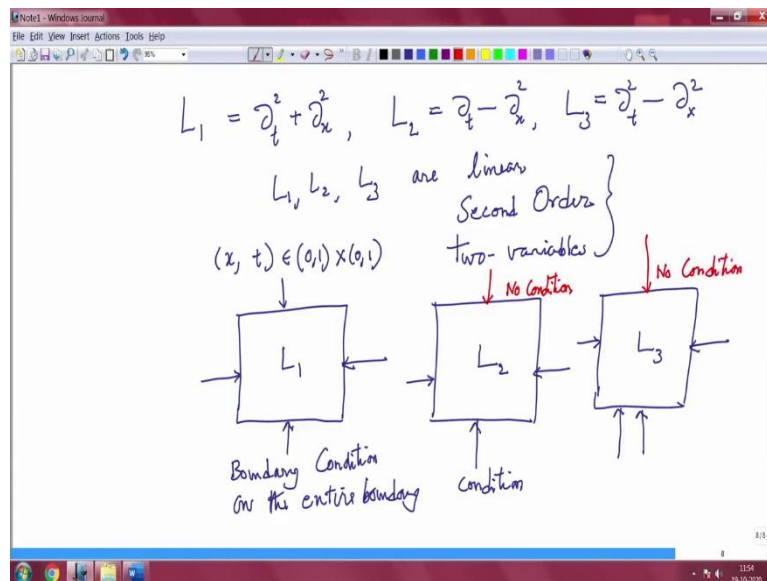 Note1 - Windows Journal
File Edit View Insert Actions Tools Help
96%
B I
L₁ = ∂ₜ² + ∂ₓ², L₂ = ∂ₜ - ∂ₓ², L₃ = ∂ₜ² - ∂ₓ²
L₁, L₂, L₃ are linear
Second Order
two-variables
(x, t) ∈ (0,1) × (0,1)
No Condition
No Condition
L₁
L₂
L₃
Boundary Condition
on the entire boundary
condition
8/8
8
11:54
19-10-2020